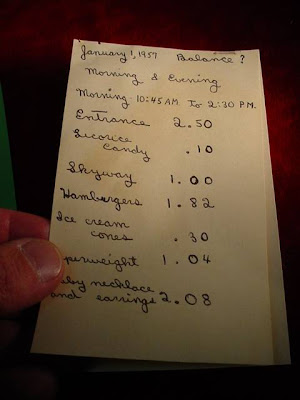 January 1, 1957 Balance?
Morning & Evening
Morning 10:45 AM to 2:30 P.M.
Entrance 2.50
Licorice
Candy .10
Skyway 1.00
Hamburgers 1.82
Ice cream
cones .30
perweight 1.04
by necklace
and earrings 2.08